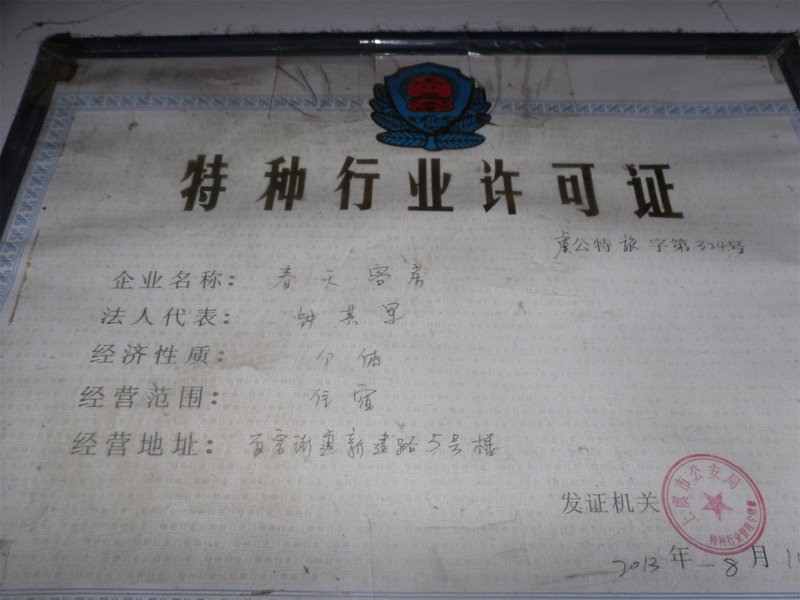 特种行业许可证
虞公特旅字第324号
企业名称：春天客房
法人代表：
经济性质：个体
经营范围：住宿
经营地址：百官街道新建路5号楼
发证机关
上虞市公安局
特种行业管理专用章
2013年8月